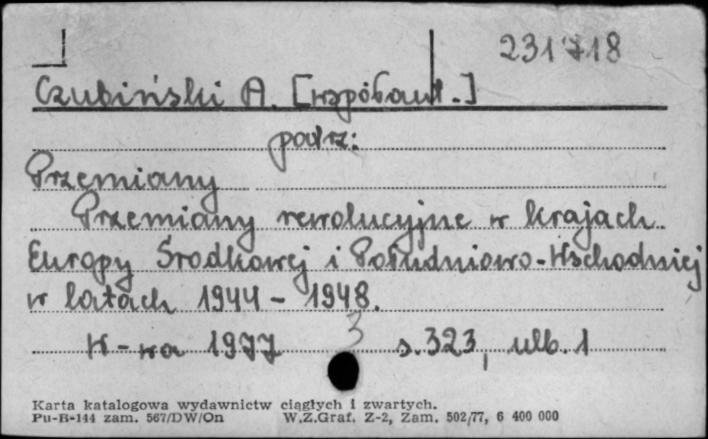 231718
Czubiński A. [współaut.]
patrz:
Przemiany
Przemiany rewolucyjne w krajach
Europy Środkowej i Południowo-Wschodniej
w latach 1944 - 1948.
W-wa 1977 3 s. 323, ulb. 1
Karta katalogowa wydawnictw ciągłych i zwartych.
Pu-B-144 zam. 567/DW/On W.Z.Graf. Z-2, Zam. 502/77, 6 400 000